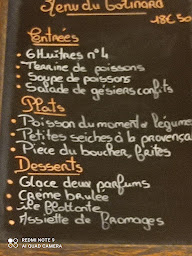 Menu du Gotinard
18€50
Entreés
6 Huîtres n°4
Terrine de poissons
Soupe de poissons
Salade de gésiers confits
Plats
Poisson du moment et légumes
Petites seiches à la provença
Pièce du boucher, frites
Desserts
Glace deux parfums
Crème brulée
île flottante
Assiette de fromages
REDMI NOTE 9
AI QUAD CAMERA